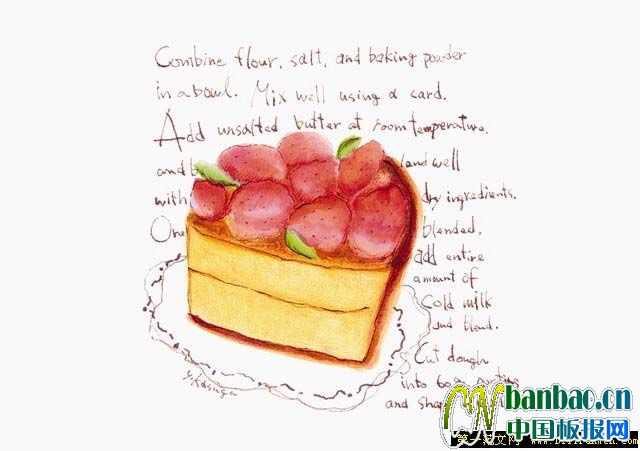 Combine flour, salt, and baking powder
in a bowl. Mix well using a card.
Add unsalted butter at room temperature,
and b and well
with dry ingredients.
One blended,
add entire
amount of
Cold milk
and blend.
Cut dough
into 60g
and shap
y.Kasuga
banbao.cn
中国板报网
第一范文网